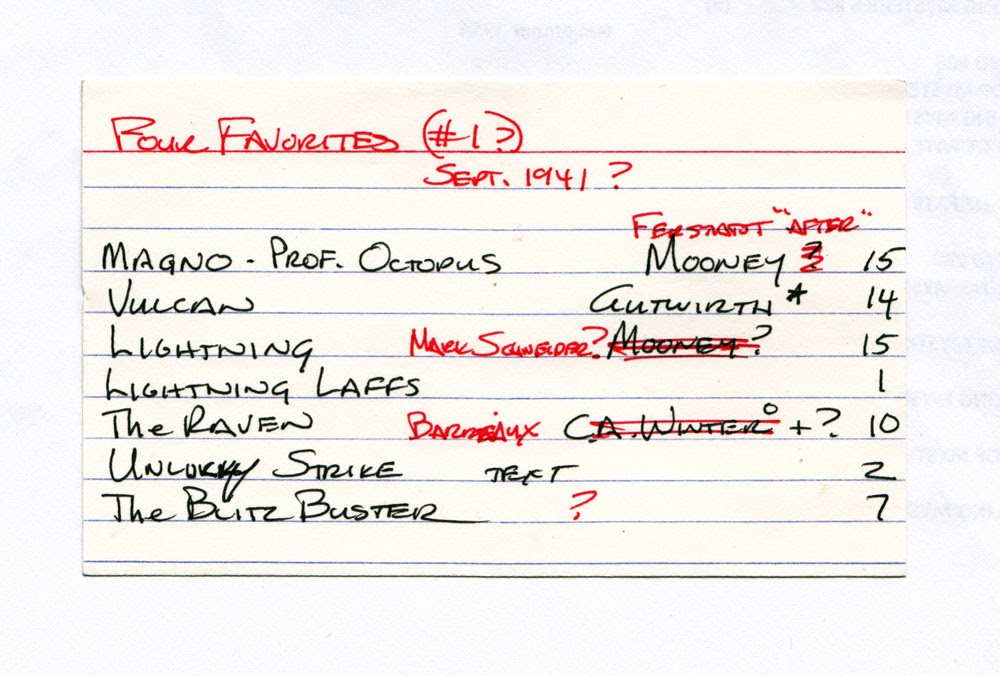 Four Favorites (#1?)
Sept. 1941 ?
Ferstadt "after"
Magno - Prof. Octopus Mooney ? 15
Vulcan Gutwirth * 14
Lightning Mark Schneider? Mooney? 15
Lightning Laffs 1
The Raven Barreaux C.A. Winter + ? 10
Unlucky Strike text 2
The Blitz Buster ? 7